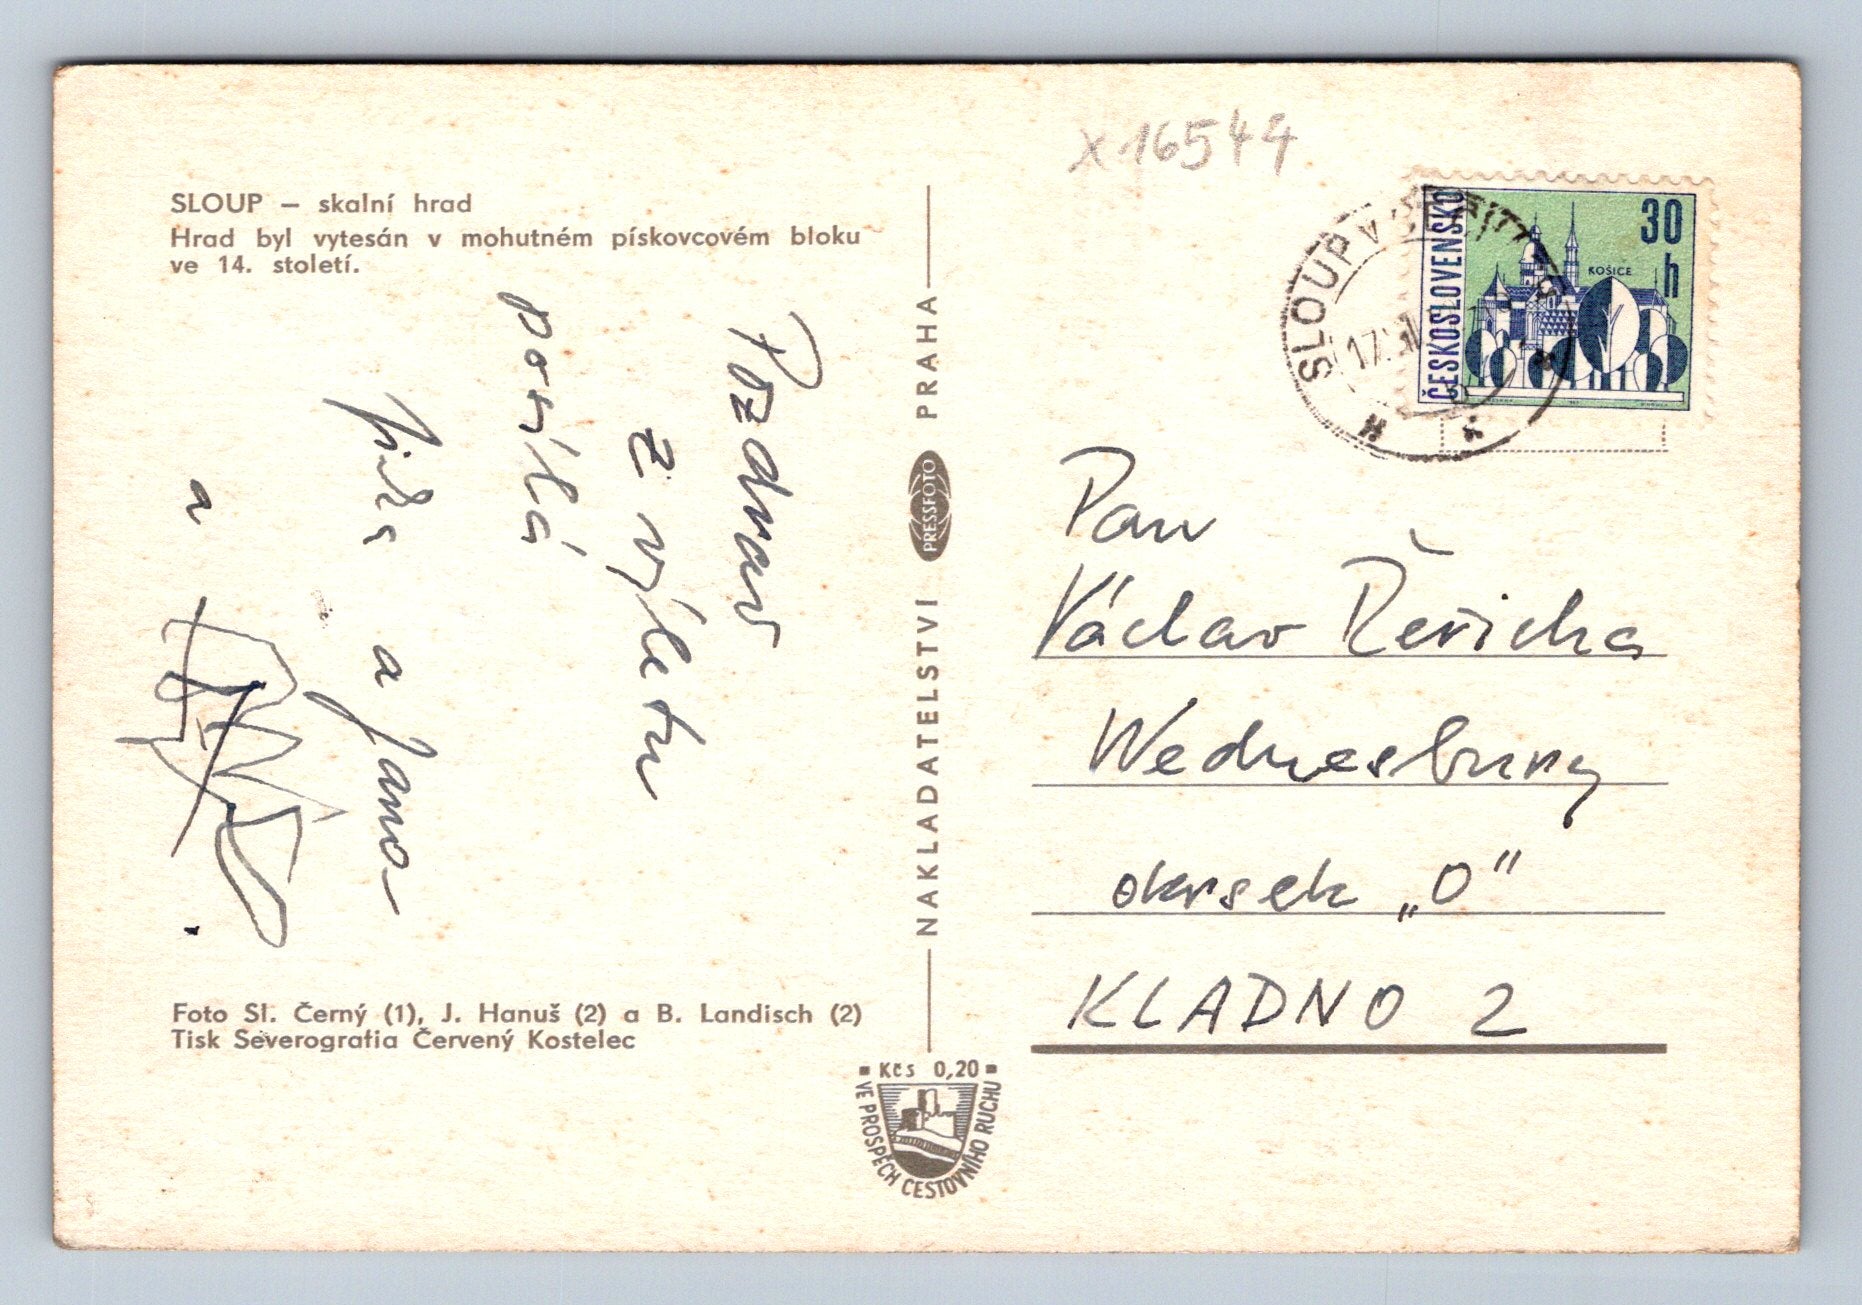 x 16544
SLOUP – skalní hrad
Hrad byl vytesán v mohutném pískovcovém bloku
ve 14. století.
Pozdrav
z výletu
posílá
Jirka a Jamo-
a
Foto Sl. Černý (1), J. Hanuš (2) a B. Landisch (2)
Tisk Severografia Červený Kostelec
NAKLADATELSTVI PRESSFOTO PRAHA
Kčs 0,20
VE PROSPĚCH CESTOVNÍHO RUCHU
SLOUP V
17.
ČESKOSLOVENSKO
30
h
KOŠICE
Pan
Václav Řeřicha
Wednesbury
okrsek „0"
KLADNO 2